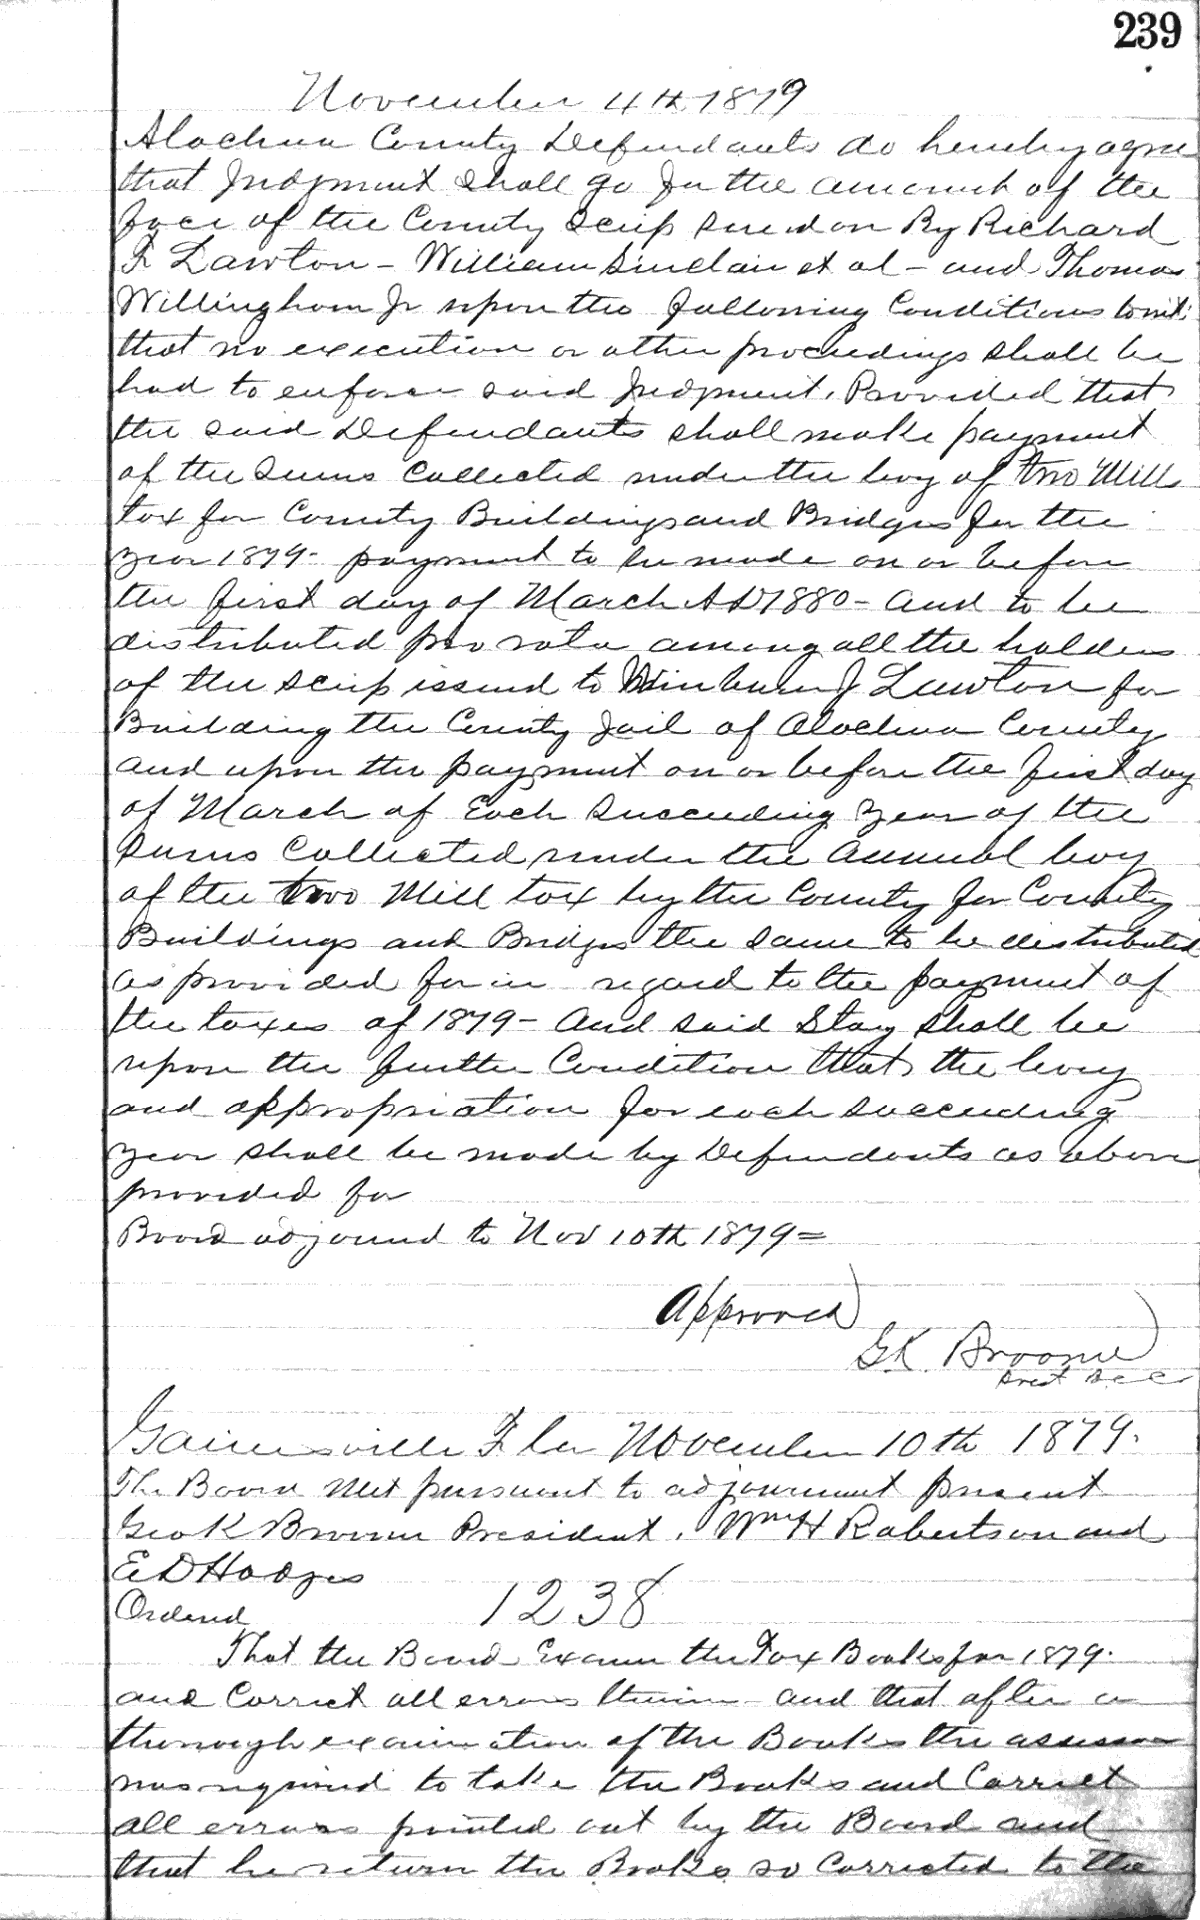 239
November 4th 1879
Alachua County Defendants do hereby agree
that Judgment shall go for the amount of the
face of the County Scrip sued on By Richard
F Lawton - William Sinclair et al - and Thomas
Willingham Jr upon the following Conditions towit:
that no execution or other proceedings shall be
had to enforce said Judgment. Provided that
the said Defendants shall make payment
of the Sums Collected under the levy of two Mill
tax for County Buildings and Bridges for the
year 1879 - payment to be made on or before
the first day of March AD 1880 - and to be
distributed pro rata among all the holders
of the scrip issued to J Lawton for
Building the County Jail of Alachua County
and upon the payment on or before the first day
of March of Each Succeeding year of the
Sums Collected under the annual levy
of the two Mill tax by the County for County
Buildings and Bridges the same to be distributed
as provided for in regard to the payment of
the taxes of 1879 - And said Stay shall be
upon the further Condition that the levy
and appropriation for each succeeding
year shall be made by Defendants as above
provided for
Board adjourned to Nov 10th 1879 =
Approved
G.K. Broome
Prest B.C.C.
Gainesville Fla November 10th 1879.
The Board Met pursuant to adjournment present
Geo K Broome President. Wm H Robertson and
E D Hodges
Ordered 1238
That the Board Examine the Tax Books for 1879.
and Correct all errors therein - and that after a
thorough examination of the Books the assessor
was required to take the Books and Correct
all errors pointed out by the Board and
that he return the Books so Corrected to the